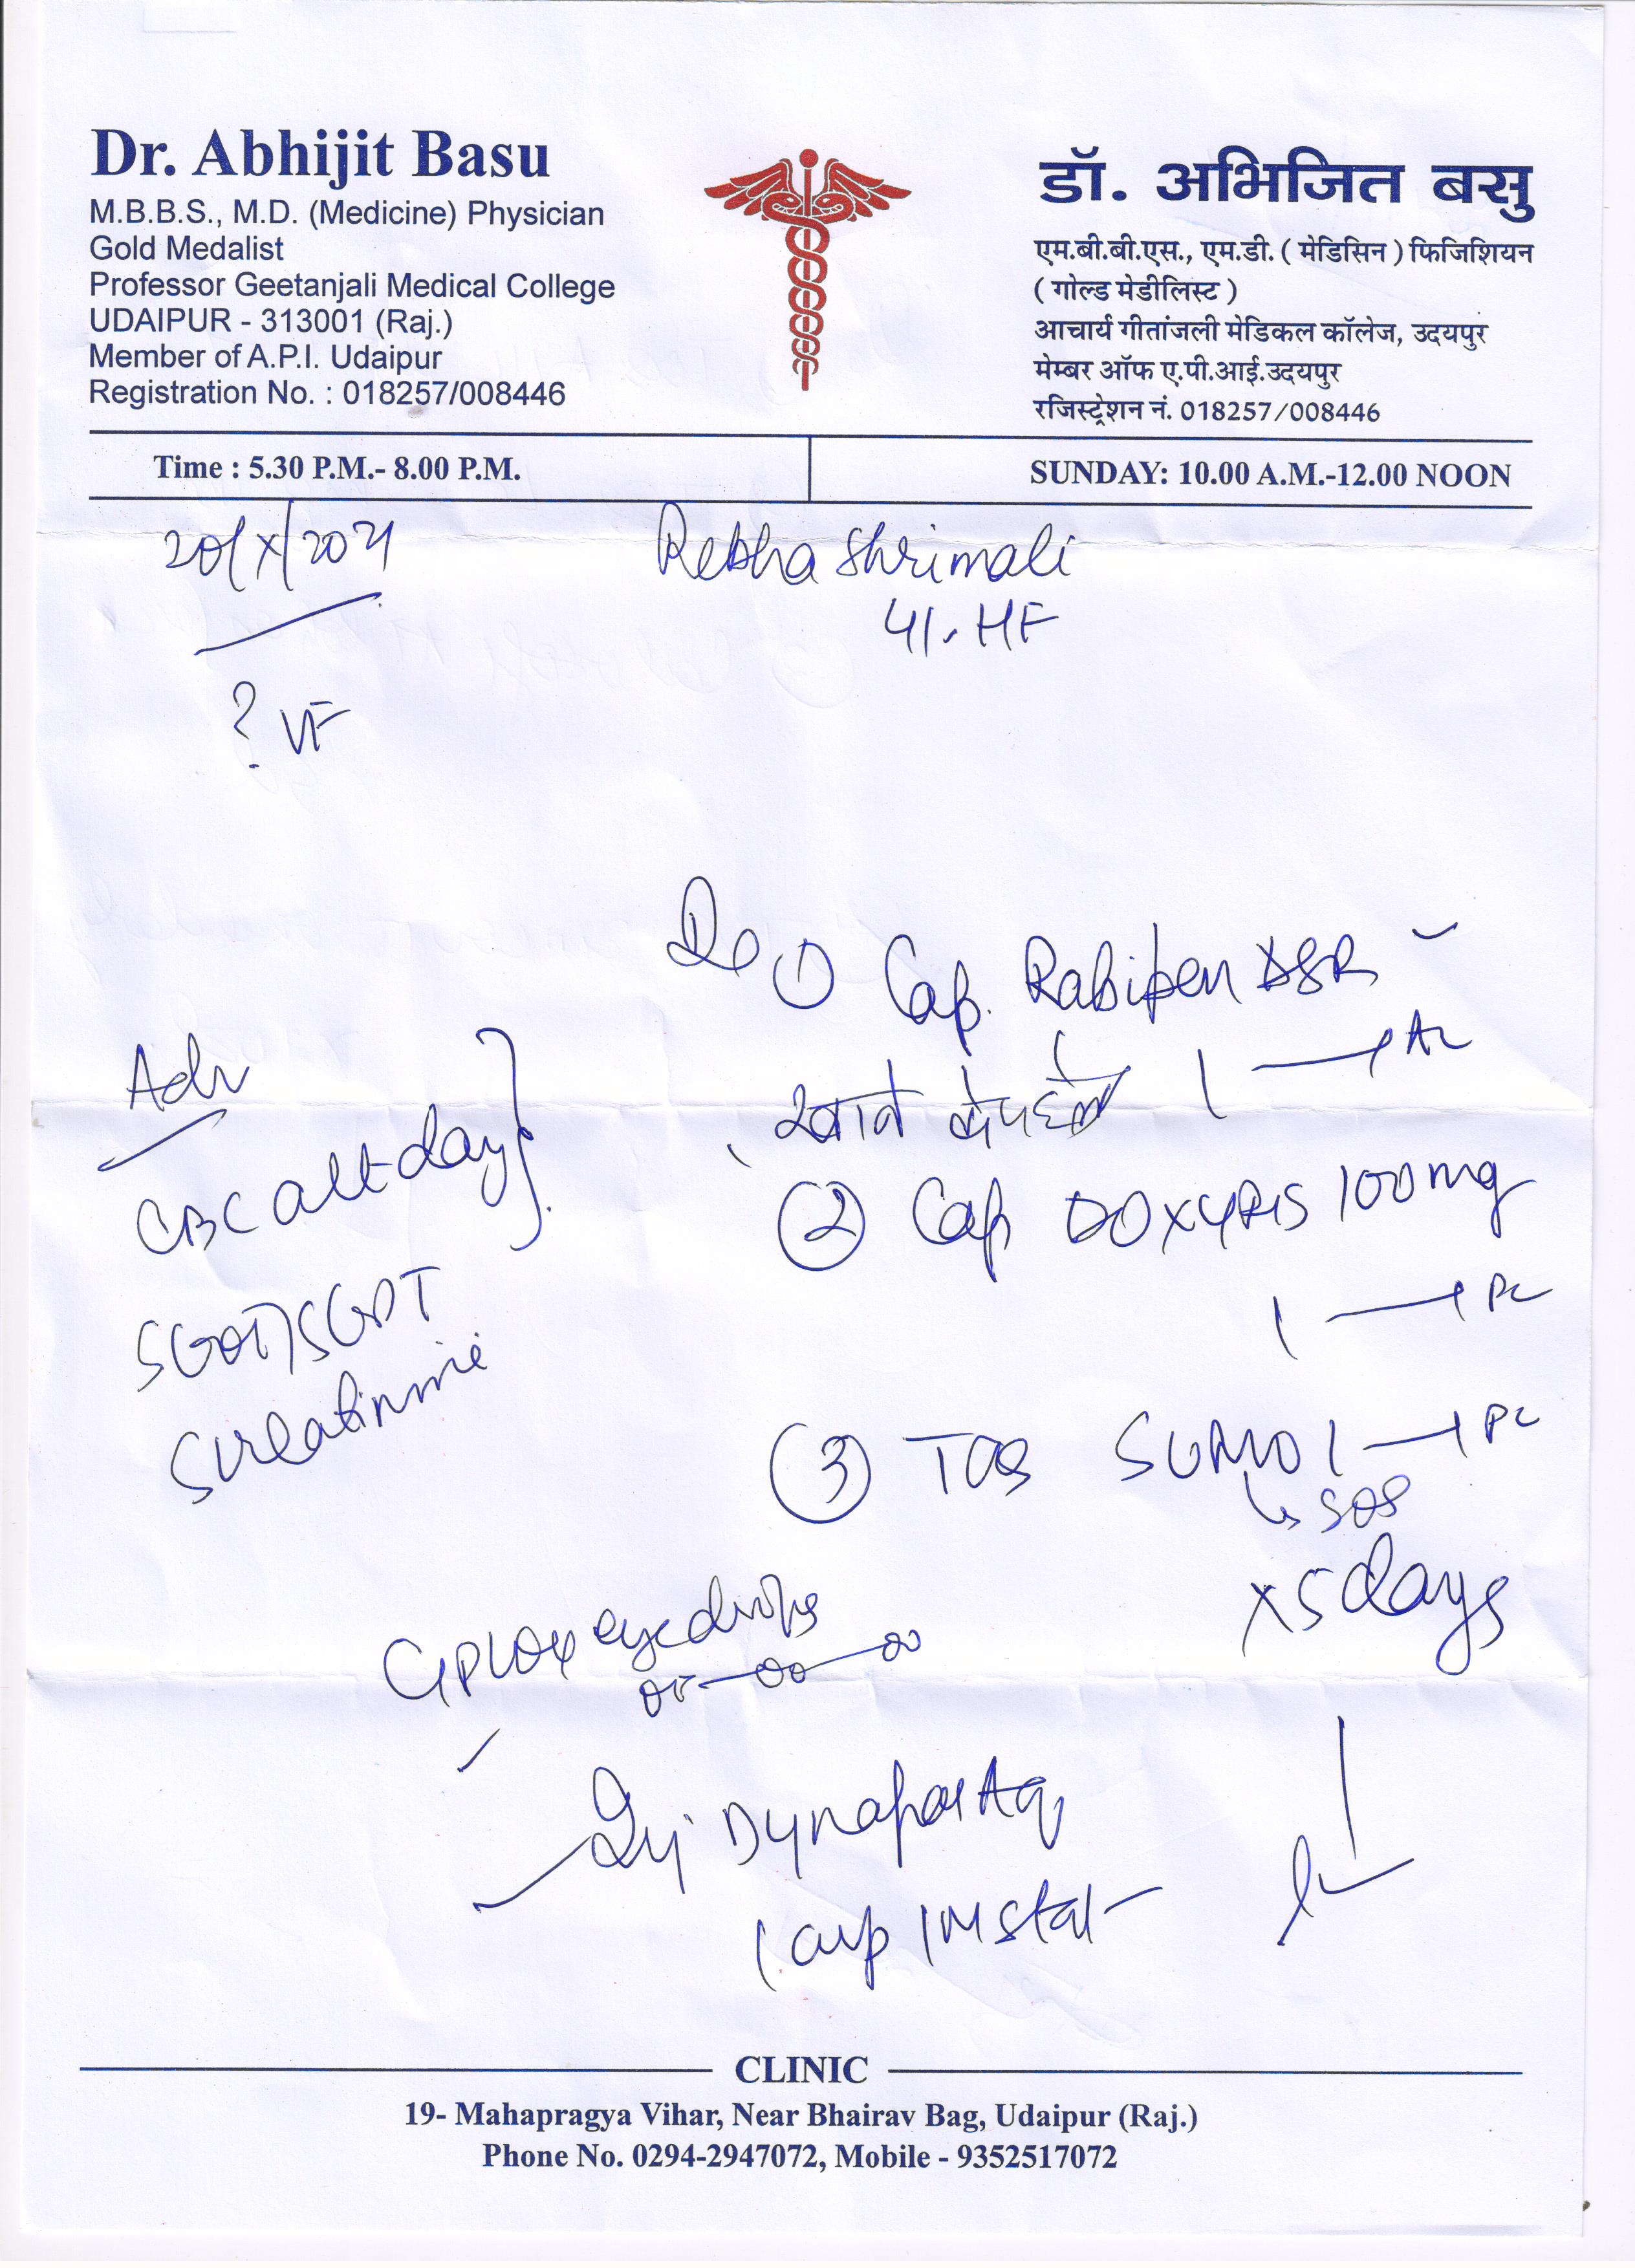 Dr. Abhijit Basu
M.B.B.S., M.D. (Medicine) Physician
Gold Medalist
Professor Geetanjali Medical College
UDAIPUR - 313001 (Raj.)
Member of A.P.I. Udaipur
Registration No. : 018257/008446
डॉ. अभिजित बसु
एम.बी.बी.एस., एम.डी. ( मेडिसिन ) फिजिशियन
( गोल्ड मेडीलिस्ट )
आचार्य गीतांजली मेडिकल कॉलेज, उदयपुर
मेम्बर ऑफ ए.पी.आई.उदयपुर
रजिस्ट्रेशन नं. 018257/008446
Time : 5.30 P.M.- 8.00 P.M.
SUNDAY: 10.00 A.M.-12.00 NOON
Shrimali
41. HF
? VF
① Cap. Rabipen DSR
खाने से पहले 1 AC
② Cap 100mg
1 PC
③ TAB SUMO 1 PC
SOS
x5days
Adv
CBC alt day
SGOT/SGPT
S creatinine
eye drops
Inj Dynapar Aq
1 amp IM stat
CLINIC
19- Mahapragya Vihar, Near Bhairav Bag, Udaipur (Raj.)
Phone No. 0294-2947072, Mobile - 9352517072